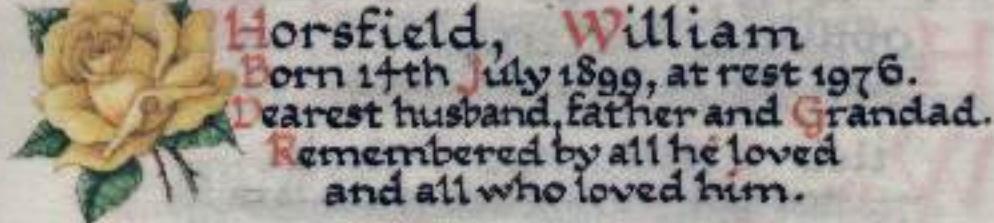 Horsfield, William
Born 14th July 1899, at rest 1976.
Dearest husband, father and Grandad.
Remembered by all he loved
and all who loved him.